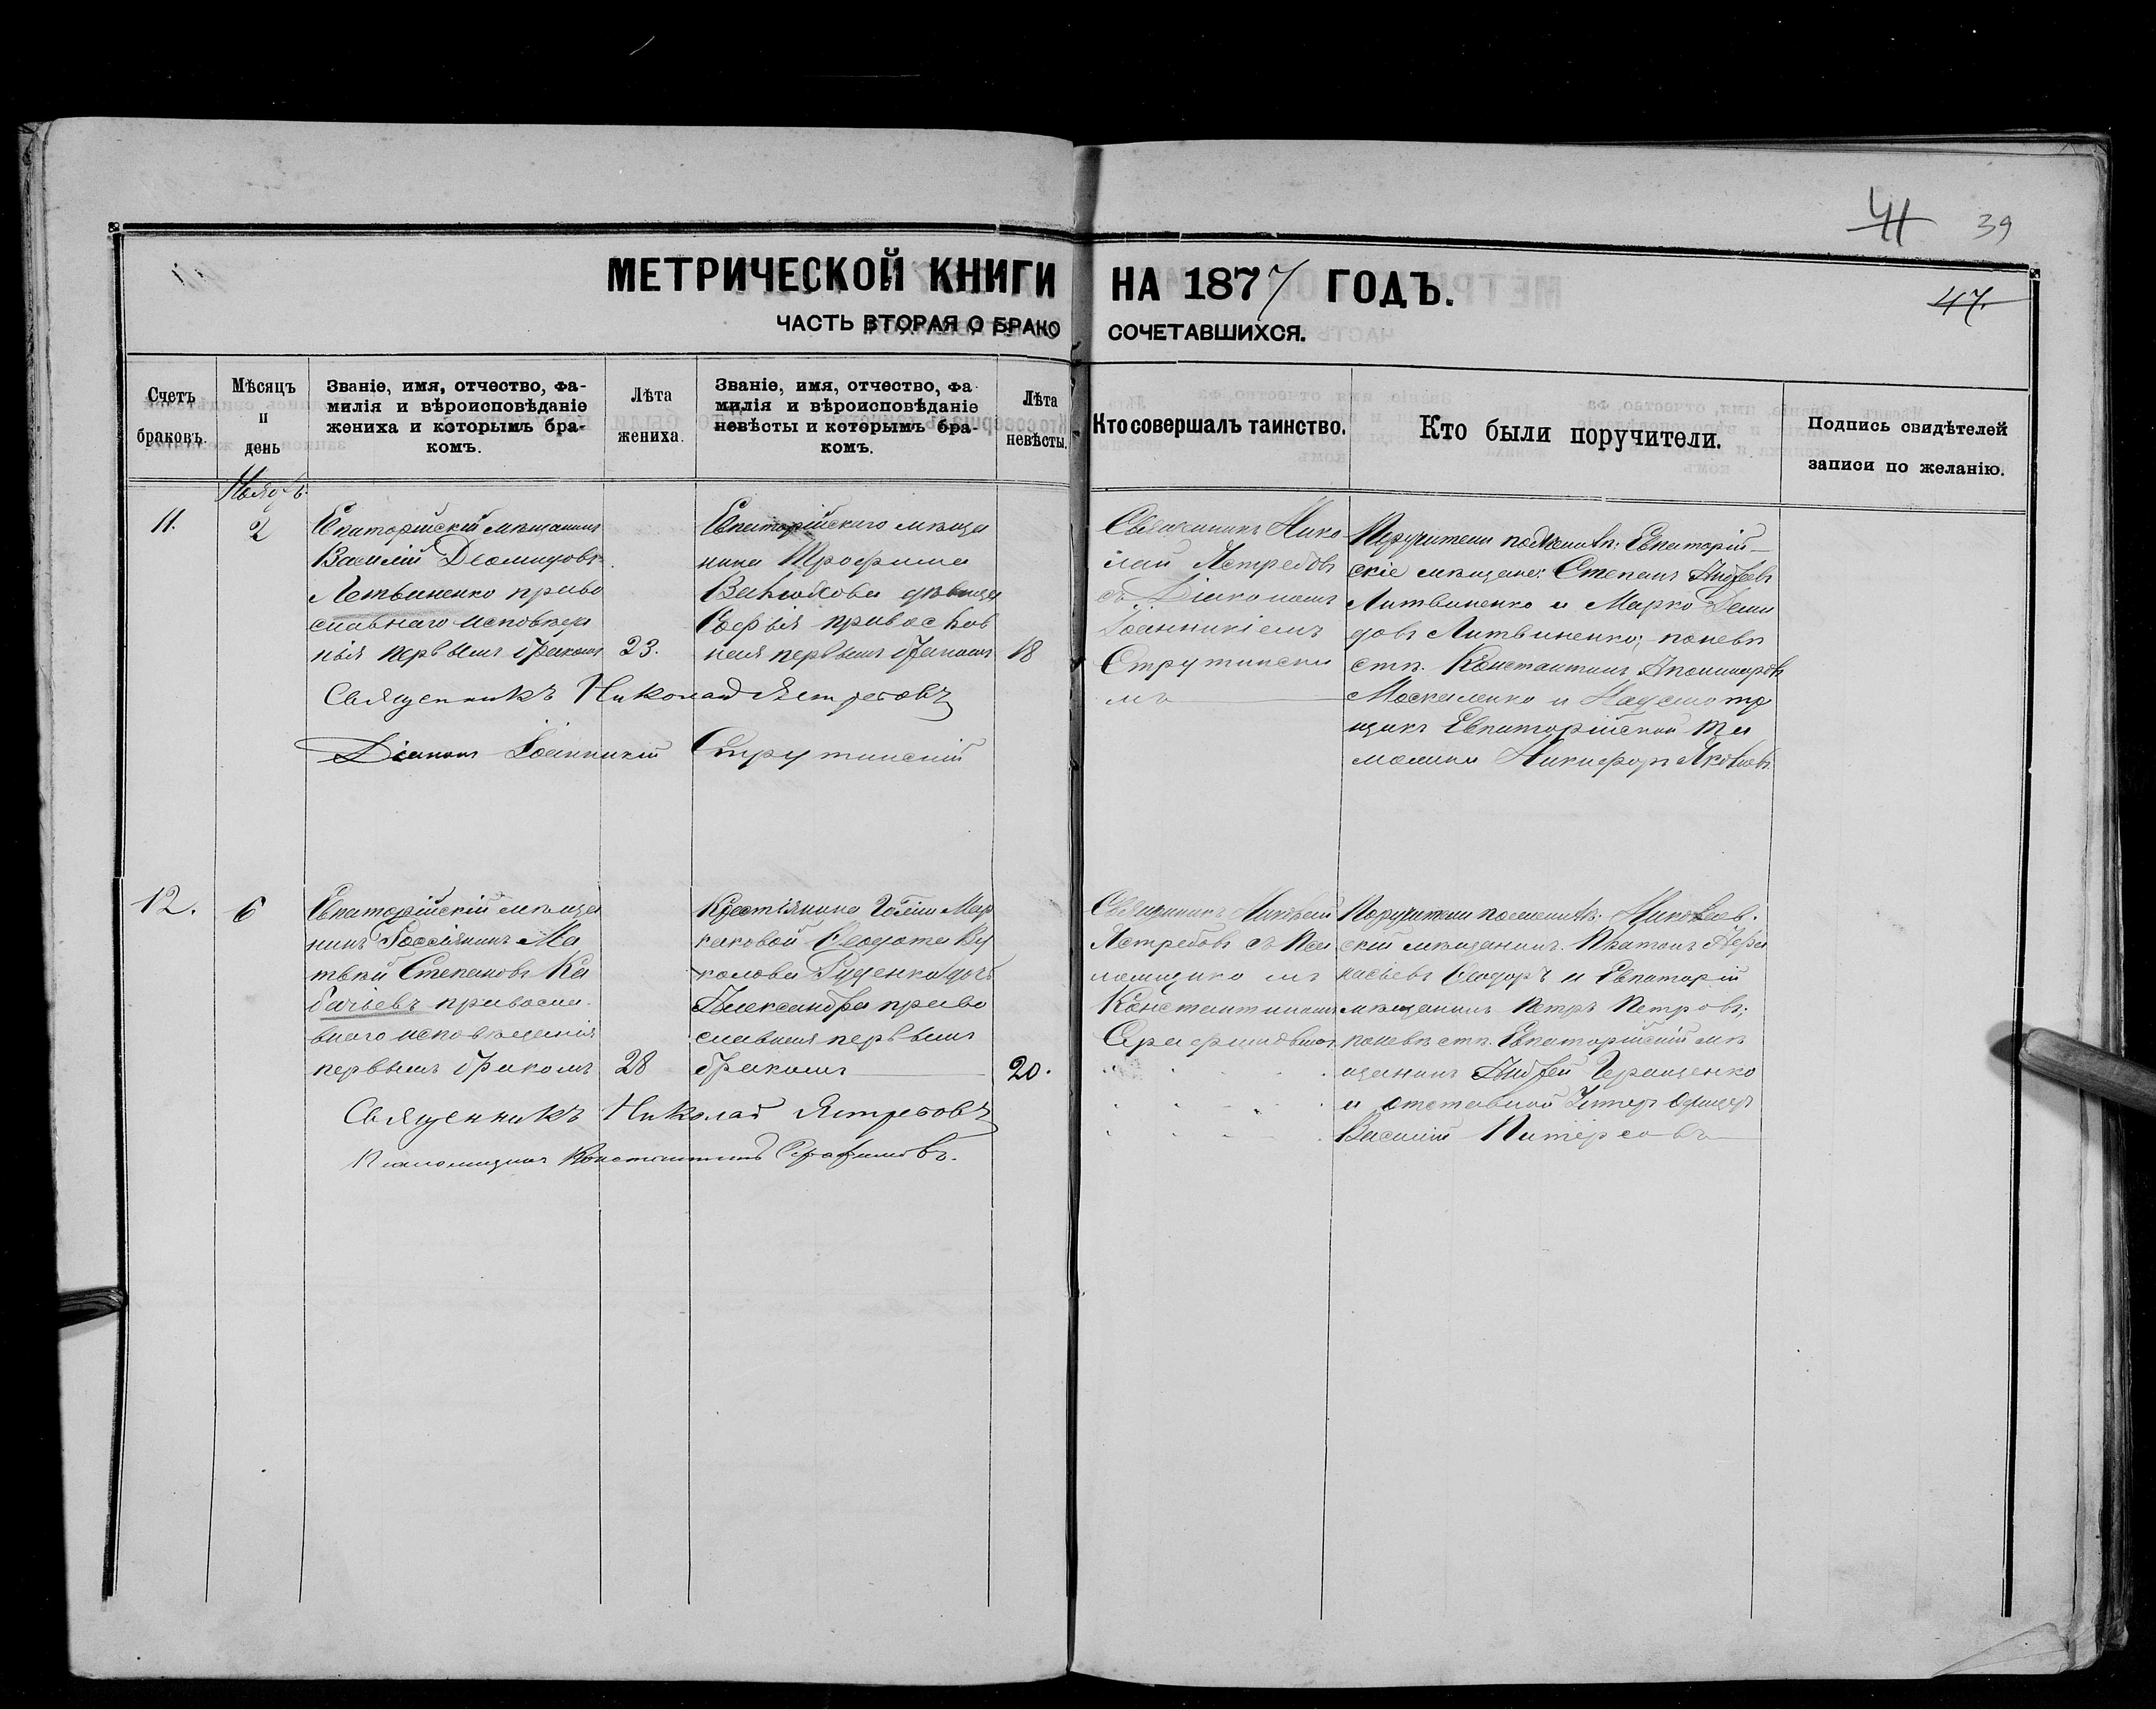 41 39
МЕТРИЧЕСКОЙ КНИГИ НА 1877 ГОДЪ.
47.
ЧАСТЬ ВТОРАЯ О БРАКОСОЧЕТАВШИХСЯ.
Счетъ браковъ.
Мѣсяцъ и день
Званіе, имя, отчество, фа-
милія и вѣроисповѣданіе
жениха и которымъ бра-
комъ.
Лѣта жениха.
Званіе, имя, отчество, фа
милія и вѣроисповѣданіе
невѣсты и которымъ бра-
комъ.
Лѣта невѣсты.
Кто совершалъ таинство.
Кто были поручители.
Подпись свидѣтелей
записи по желанію.
Ноябрь
11.
2
Евпаторійскій мѣщанинъ
Василій Діомидовъ
Летвиненко право
славнаго исповѣда
нія первымъ бракомъ
23.
Евпаторійскаго мѣща
нина Трофима
дѣвица
Софья православ
ная первымъ бракомъ
18
Священникъ Нико
лай Ястребовъ
съ Діакономъ
Іоанникіемъ
Струтински
мъ
Поручители по женихѣ: Евпаторій-
скіе мѣщане: Степанъ Андреевъ
Литвиненко и Марко Деми
довъ Литвиненко; по невѣ
стѣ. Константинъ
Москаленко и Надсмотр
щикъ Евпаторійской та
можни Никифоръ Яковлевъ.
Священникъ Николай Ястребовъ
Діаконъ Іоанникій Струтинскій
12.
6
Евпаторійскій мѣща
нинъ Россіянинъ Ма
твѣй Степановъ Ка
бачьевъ правосла
внаго исповѣданія
первымъ бракомъ
28
Крестянина
Феодота Ву
колова Руденко дочь
Александра право
славная первымъ
бракомъ
20.
Священникъ Николай
Ястребовъ съ Пса
ломщикомъ
Константиномъ
Серафимовымъ.
Поручители по женихѣ: Николаев.
скій мѣщанинъ. Платонъ Афа
насьевъ Феодоръ и Евпаторій
мѣщанинъ Петръ Петровъ;
по невѣстѣ. Евпаторійскій мѣ
щанинъ Андрей Геращенко
и отставной Унтеръ Офицеръ
Василій
Священникъ Николай Ястребовъ
Псаломщикъ Константинъ Серафимовъ.